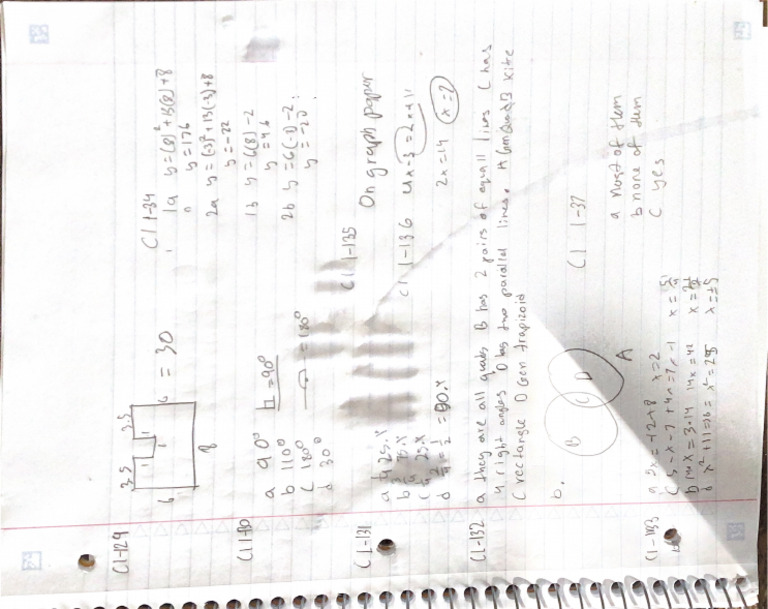 Cl 1-129
3.5
3.5
1
1
1
6
6
8
= 30
Cl 1-130
a 90°
b 110°
c 180°
d 30°
= 90°
= 180°
Cl 1-131
a 1/4 25.%
c 25.%
d 2/4 = 1/2 = 50.%
Cl 1-132
a they are all quads B has 2 pairs of equall lines C has
4 right angles D has two parallel lines. A Gen Quad B kite
C rectangle D Gen trapizoid
b.
B
C
D
A
Cl 1-133
x=-12+8 x=2
C 5-x-7+4x=7x-1
b 14x=3•14 14x=42
d x²+11=36 = x²=25 x=±5
Cl 1-34
1a y=(8)²+13(8)+8
y=176
2a y=(-3)²+13(-3)+8
y=-22
1b y=6(8)-2
y=46
2b y=6(-3)-2
y=-20
Cl 1-135
On graph paper
Cl 1-136
4x-3=2x+11
2x=14
x=7
Cl 1-37
a most of them
b none of them
C yes